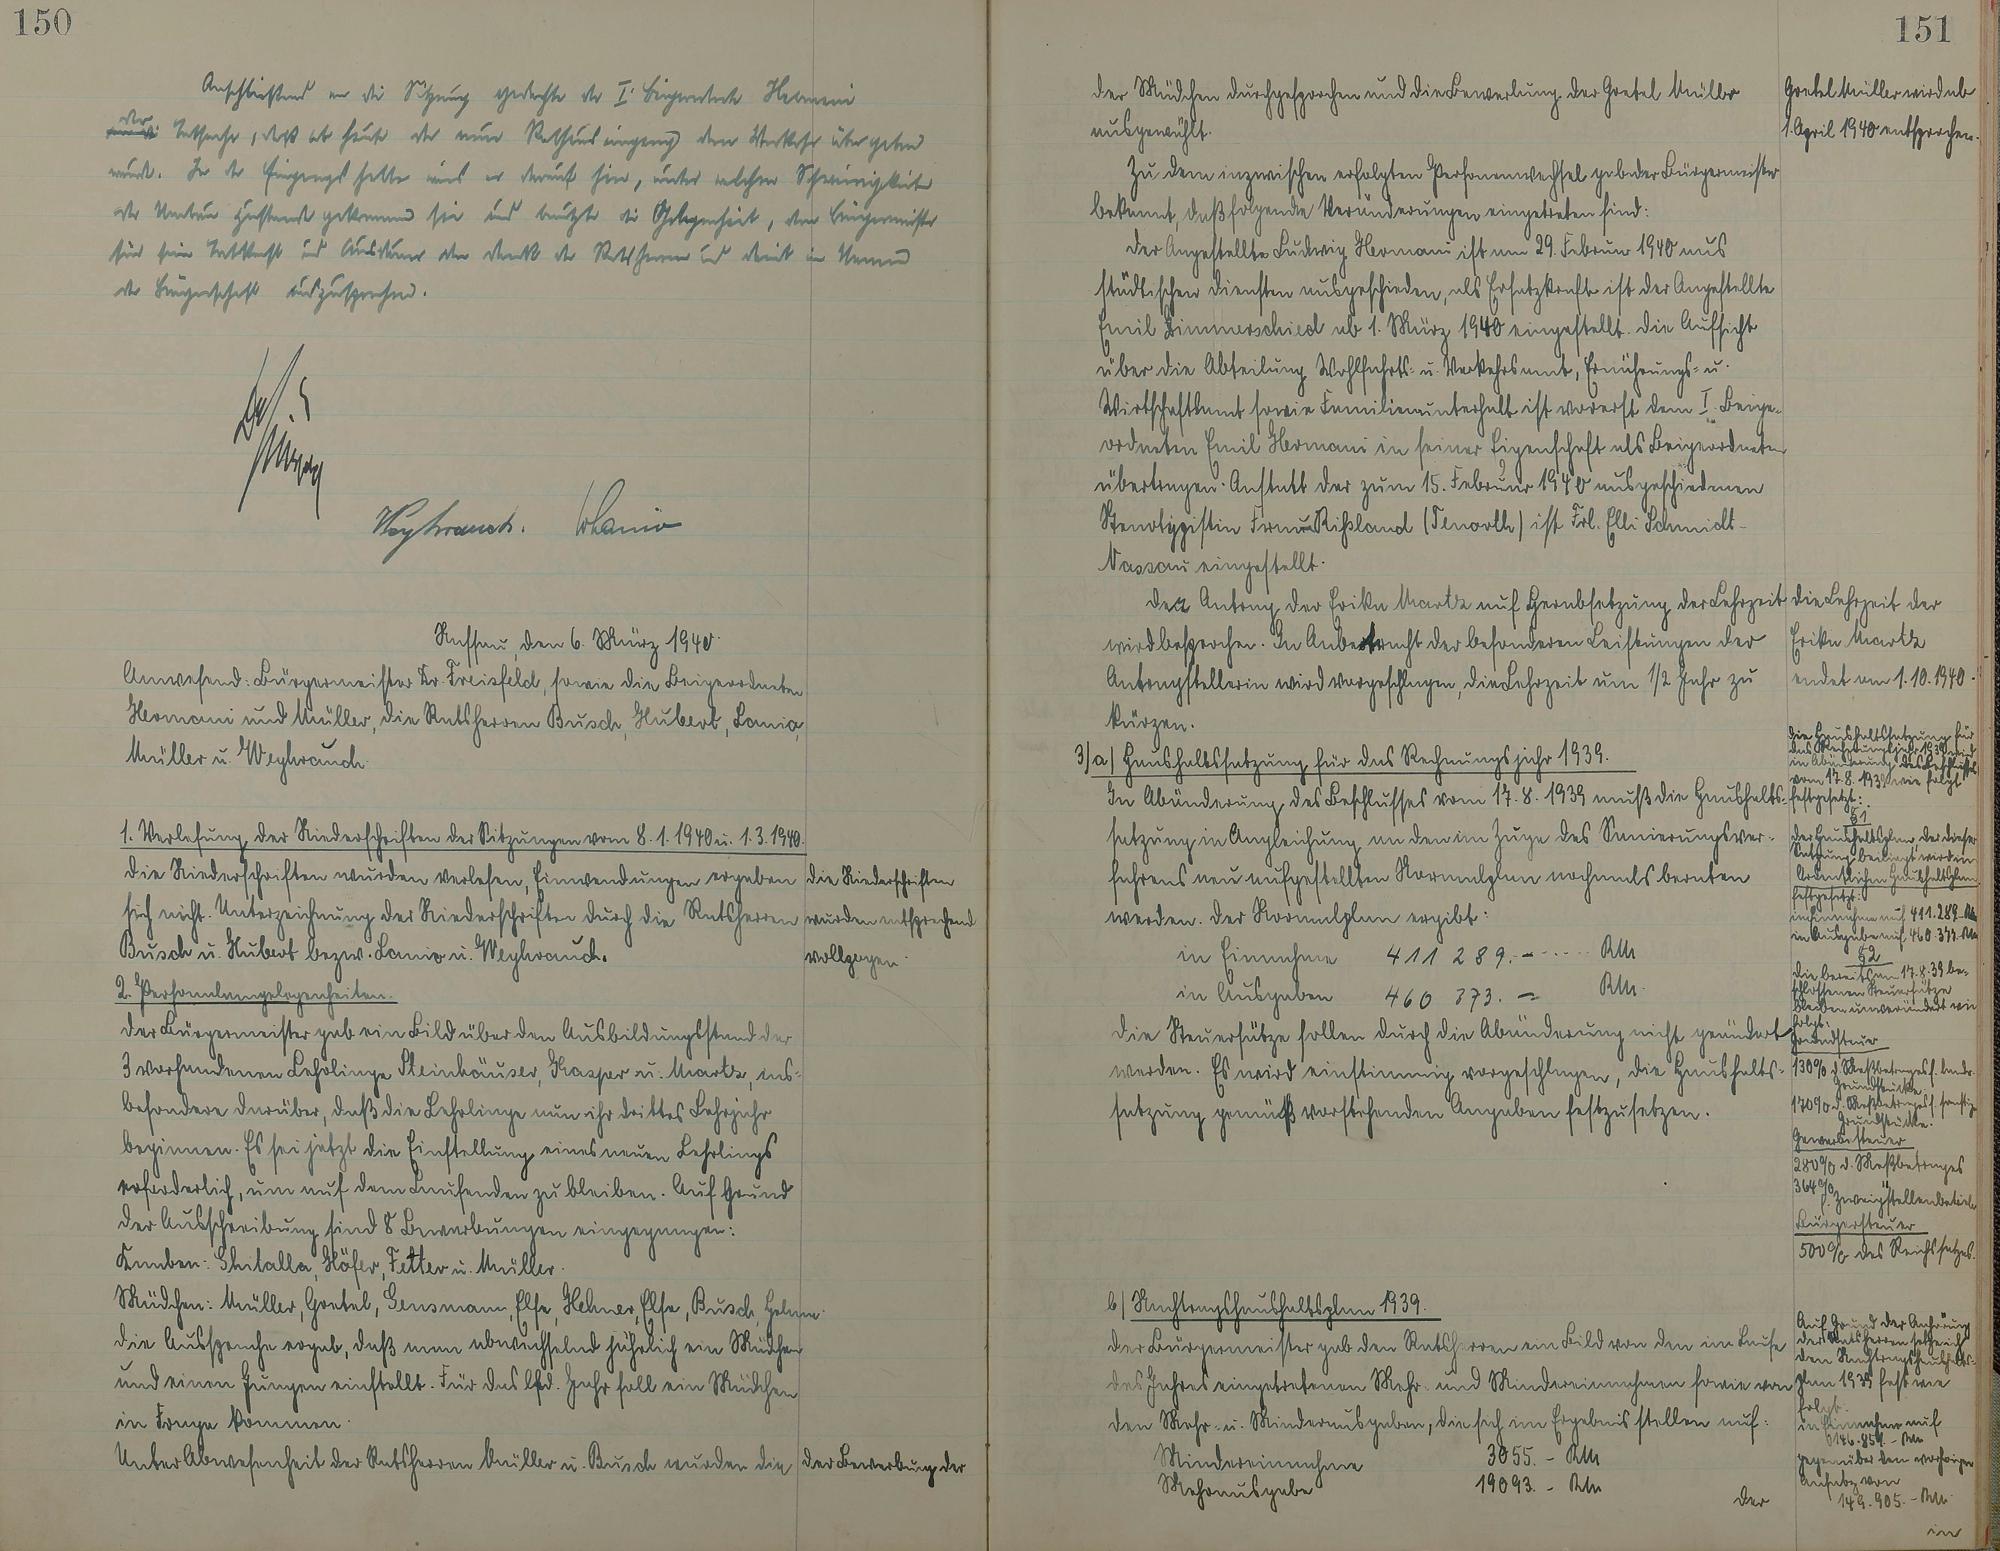 150
Anschließend an die Sitzung gedachte der I. Beigeordnete Hermani
der Tatsache, daß ab heute der neue Rathauseingang dem Verkehr übergeben
wurde. In der Eingangshalle wies er darauf hin, unter welchen Schwierigkeiten
der Umbau zustande gekommen sei und benutzte die Gelegenheit, dem Bürgermeister
für seine Tatkraft und Ausdauer den Dank der Ratsherren und damit im Namen
der Bürgerschaft auszusprechen.
Weyhrauch. Lanio
Nassau, den 6. März 1940.
Anwesend: Bürgermeister Dr. Freisfeld, sowie die Beigeordneten
Hermani und Müller, die Ratsherren Busch, Hubert, Lanio,
Müller u. Weyhrauch.
1. Verlesung der Niederschriften der Sitzungen vom 8.1.1940 u. 1.3.1940.
Die Niederschriften wurden verlesen, Einwendungen ergaben
sich nicht. Unterzeichnung der Niederschriften durch die Ratsherren
Busch u. Hubert bezw. Lanio u. Weyhrauch.
Die Niederschriften
wurden entsprechend
vollzogen.
2. Personalangelegenheiten.
Der Bürgermeister gab ein Bild über den Ausbildungsstand der
3 vorhandenen Lehrlinge Steinhäuser, Kaspar u. Martz, ins-
besondere darüber, daß die Lehrlinge nun ihr drittes Lehrjahr
beginnen. Es sei jetzt die Einstellung eines neuen Lehrlings
erforderlich, um auf dem Laufenden zu bleiben. Auf Grund
der Ausschreibung sind 8 Bewerbungen eingegangen:
Knaben: Shitalla, Höfer, Fetter u. Müller.
Mädchen: Müller, Gretel, Gensmann, Else, Hehner, Else, Busch, Helma.
Die Aussprache ergab, daß man abwechselnd jährlich ein Mädchen
und einen Jungen einstellt. Für das lfd. Jahr soll ein Mädchen
in Frage kommen.
Unter Abwesenheit der Ratsherren Müller u. Busch wurden die
Der Bewerbung der
151
der Mädchen durchgesprochen und die Bewerbung der Gretel Müller
ausgewählt.
Gretel Müller wird ab
1. April 1940 entsprochen.
Zu dem inzwischen erfolgten Personenwechsel gab der Bürgermeister
bekannt, daß folgende Veränderungen eingetreten sind:
Der Angestellte Ludwig Hermani ist am 29. Februar 1940 aus
städtischen Diensten ausgeschieden, als Ersatzkraft ist der Angestellte
Emil Zimmerschied ab 1. März 1940 eingestellt. Die Aufsicht
über die Abteilung Wohlfahrts- u. Verkehrsamt, Ernährungs- u.
Wirtschaftsamt sowie Familienunterhalt ist vorerst dem I. Beige-
ordneten Emil Hermani in seiner Eigenschaft als Beigeordneten
übertragen. Anstatt der zum 15. Februar 1940 ausgeschiedenen
Stenotypistin Frau Rißland (Tenorth) ist Frl. Elli Schmidt-
Nassau eingestellt.
Der Antrag der Erika Martz auf Herabsetzung der Lehrzeit
wird besprochen. In Anbetracht der besonderen Leistungen der
Antragstellerin wird vorgeschlagen, die Lehrzeit um 1/2 Jahr zu
kürzen.
Die Lehrzeit der
Erika Martz
endet am 1.10.1940.
3) a) Haushaltssatzung für das Rechnungsjahr 1939.
In Abänderung des Beschlusses vom 17.8.1939 muß die Haushalts-
satzung in Angleichung an den im Zuge des Sanierungsver-
fahrens neu aufgestellten Normalplan nochmals beraten
werden. Der Normalplan ergibt:
in Einnahme 411 289.- RM
in Ausgaben 460 373.- RM.
Die Steuersätze sollen durch die Abänderung nicht geändert
werden. Es wird einstimmig vorgeschlagen, die Haushalts-
satzung gemäß vorstehenden Angaben festzusetzen.
Die Haushaltssatzung für
das Rechnungsjahr 1939 wird
in Abänderung des Beschlusses
vom 17.8.1939 wie folgt
festgesetzt:
§1
Der Haushaltsplan der dieser
Satzung beiliegt wird im
ordentlichen Haushaltsplan
festgesetzt:
in Einnahme auf 411.289.- RM
in Ausgabe auf 460.373.- RM
§2
Die bereits am 17.8.39 be-
schlossenen Steuersätze
bleiben unverändert wie
folgt:
Grundsteuer
130% d. Meßbetrages f. landw.
Grundstücke
170% d. Meßbetrages f. sonstige
Grundstücke.
Gewerbesteuer
280% d. Meßbetrages
364%
f. Zweigstellenbetriebe
Bürgersteuer
500% des Reichssatzes.
b) Nachtragshaushaltsplan 1939.
Der Bürgermeister gab den Ratsherren ein Bild von den im Laufe
des Jahres eingetretenen Mehr- und Mindereinnahmen sowie von
den Mehr- u. Minderausgaben, die sich im Ergebnis stellen auf:
Mindereinnahme 3055.- RM
Mehrausgabe 19093.- RM
Der
Auf Grund der Anhörung
der Ratsherren setze ich
den Nachtragshaushalts-
plan 1939 fest wie
folgt:
in Einnahmen auf
146.851.- RM
gegenüber dem vorherigen
Ansatz von
149.905.- RM
in